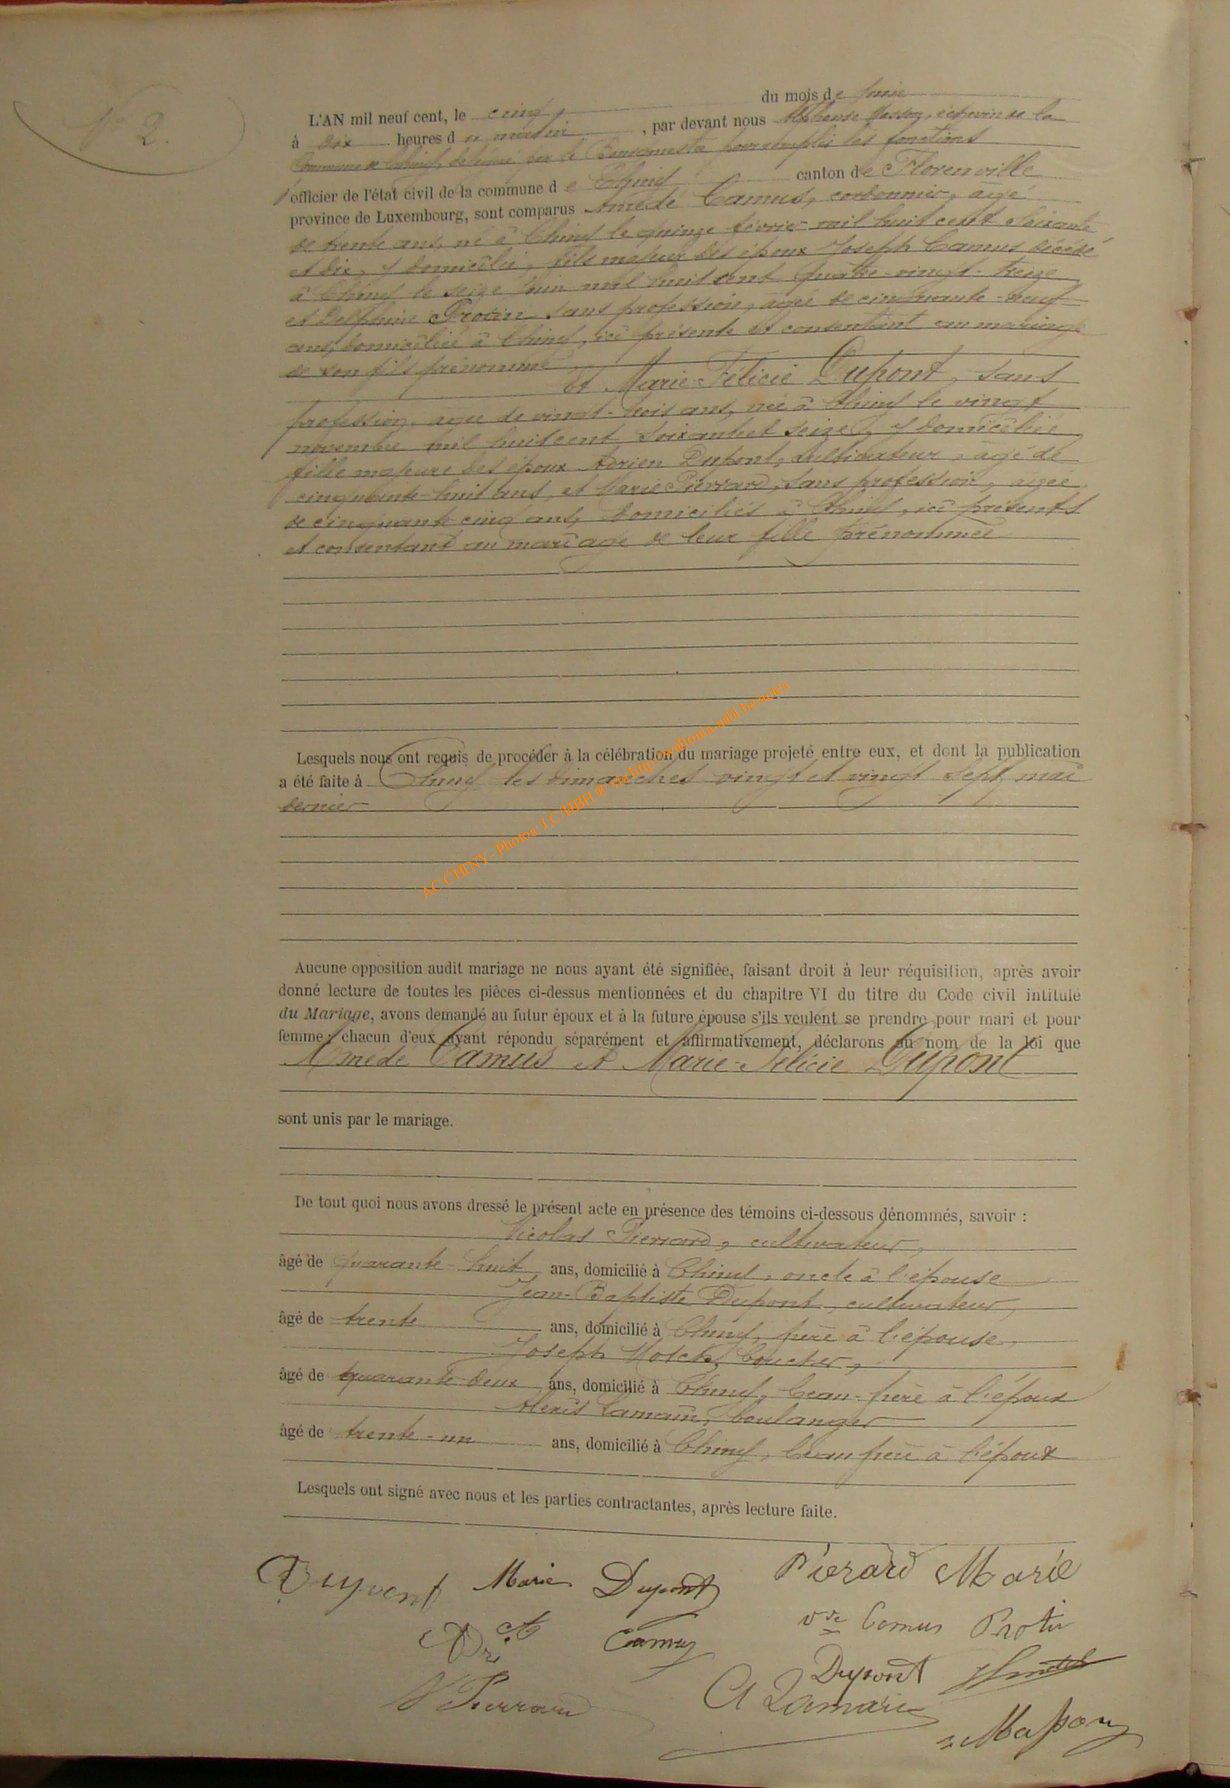 N° 2.
L'AN mil neuf cent, le cinq, du mois de juin
à dix heures du matin, par devant nous Alphonse Masson, échevin de la
Commune de Chiny, délégué par le Bourgmestre pour remplir les fonctions
d'officier de l'état civil de la commune de Chiny canton de Florenville
province de Luxembourg, sont comparus Amédé Camus, cordonnier, agé
de trente ans, né à Chiny le quinze février mil huit cent soixante
et dix, y domicilié, fils majeur des époux Joseph Camus décédé
à Chiny le seize juin mil huit cent quatre-vingt-treize
et Delphine Protin sans profession, agée de cinquante-neuf
ans, domiciliée à Chiny, ici présente et consentant au mariage
de son fils prénommé
Et Marie-Félicie Dupont, sans
profession, agée de vingt-trois ans, née à Chiny le vingt
novembre mil huit cent soixante et seize, y domiciliée,
fille majeure des époux Adrien Dupont, cultivateur, âgé de
cinquante-huit ans, et Marie Pierrard, sans profession, agée
de cinquante cinq ans, domiciliés à Chiny, ici présents
et consentant au mariage de leur fille prénommée
Lesquels nous ont requis de procéder à la célébration du mariage projeté entre eux, et dont la publication
a été faite à Chiny les dimanches vingt et vingt sept mai
dernier
AC CHINY - Photos J.C.
Aucune opposition audit mariage ne nous ayant été signifiée, faisant droit à leur réquisition, après avoir
donné lecture de toutes les pièces ci-dessus mentionnées et du chapitre VI du titre du Code civil intitulé
du Mariage, avons demandé au futur époux et à la future épouse s'ils veulent se prendre pour mari et pour
femme; chacun d'eux ayant répondu séparément et affirmativement, déclarons au nom de la loi que
Amédé Camus et Marie-Félicie Dupont
sont unis par le mariage.
De tout quoi nous avons dressé le présent acte en présence des témoins ci-dessous dénommés, savoir :
Nicolas Pierrard, cultivateur,
âgé de quarante-huit ans, domicilié à Chiny, oncle à l'épouse
Jean-Baptiste Dupont, cultivateur,
âgé de trente ans, domicilié à Chiny, frère à l'épouse,
Joseph boucher,
âgé de quarante-deux ans, domicilié à Chiny, beau-frère à l'époux
Alexis Lamarie, boulanger
âgé de trente-un ans, domicilié à Chiny, beau frère à l'époux
Lesquels ont signé avec nous et les parties contractantes, après lecture faite.
Dupont Marie Dupont Piérard Marie
Camus vve Camus Protin
Dupont
N Pierrard A Lamarie
Masson